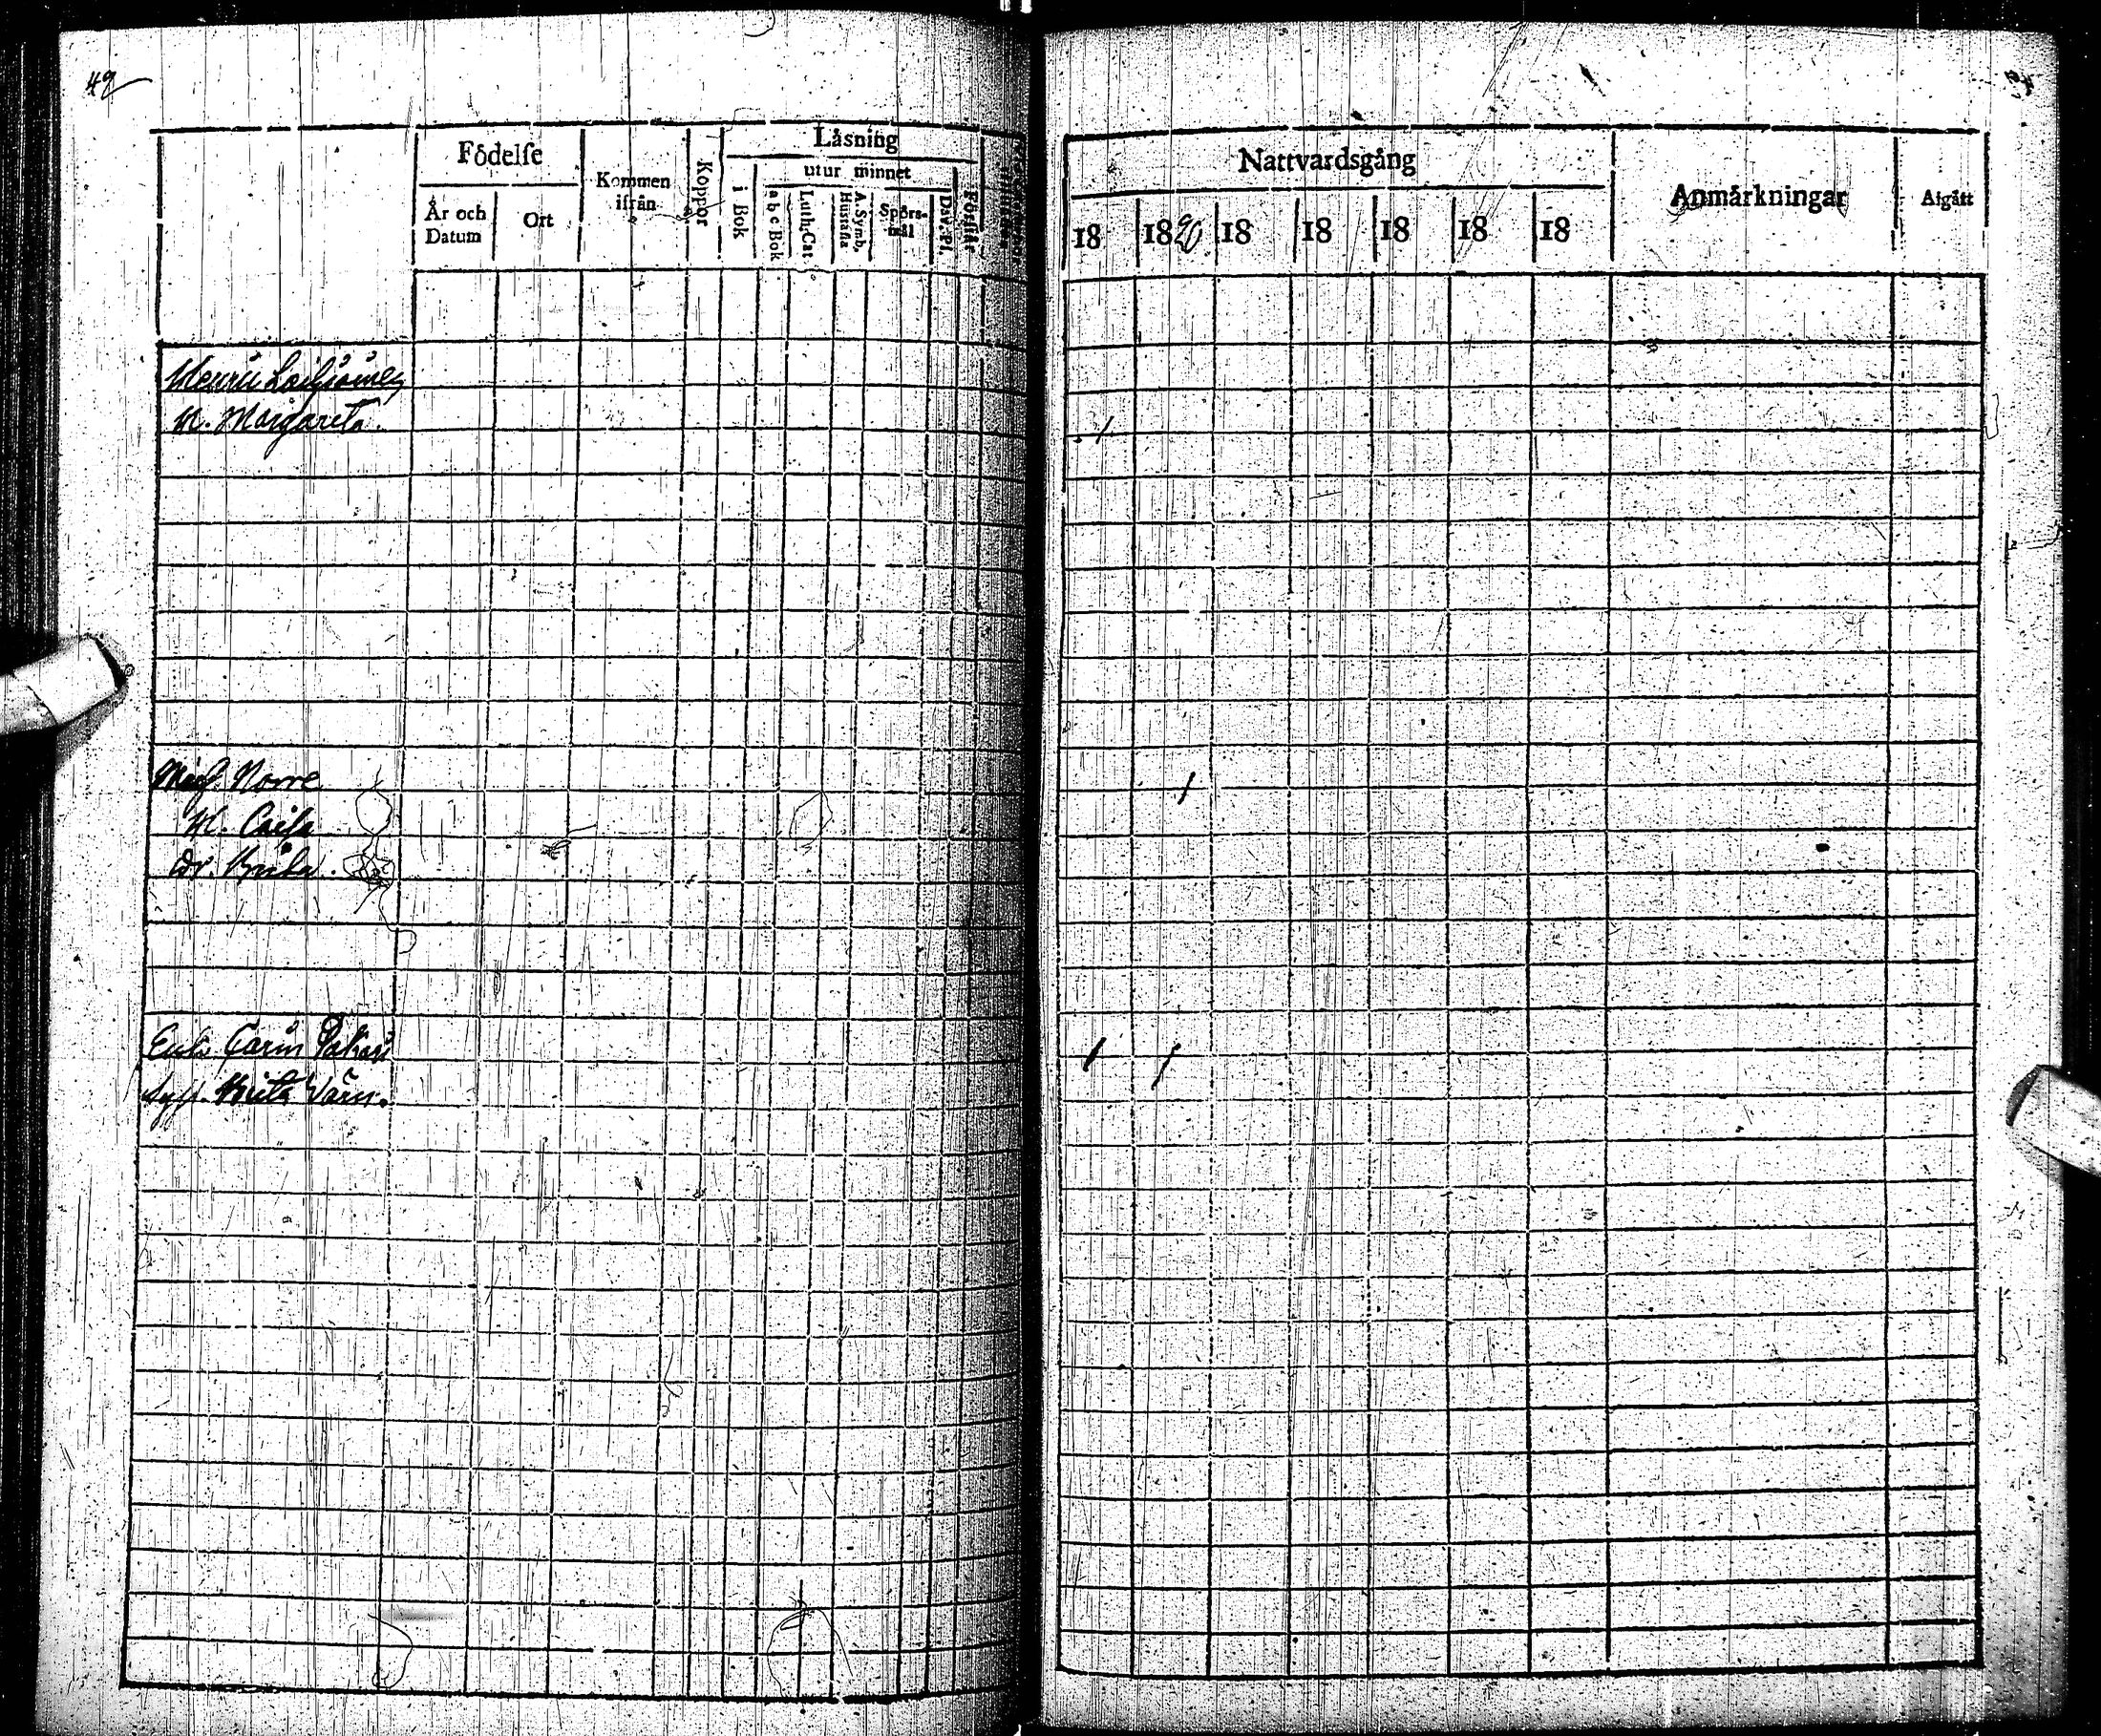 49
Födelse
År och Datum
Ort
Kommen ifrån
Koppor
Läsning
i Bok
utur minnet
a b c Bok
Luth. Cat
A. Symb. Hustafla
Spörsmål
Dav. Ps.
Förstår
M. Margareta.
Norre
H. Caisa
Dr. Brita.
Enk. Carin
Brita
Nattvardsgång
18
1820
18
18
18
18
18
Anmärkningar
Afgått